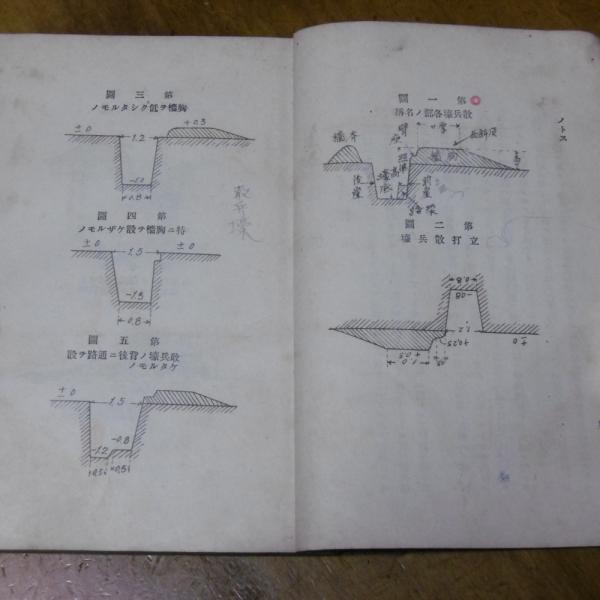 ノトス
第一圖
散兵壕各部ノ名稱
臂座
厚サ
胸墻
後崖
壕底
前崖
第二圖
立打散兵壕
0.8
-0.8
1.2
±0
+0.25
1.0
+0.5
第三圖
胸墻ヲ低クシタルモノ
±0
1.2
+0.3
0.8
散兵壕
第四圖
特ニ胸墻ヲ設ケザルモノ
±0
1.5
±0
-1.5
0.8
第五圖
散兵壕ノ背後ニ通路ヲ設
ケタルモノ
±0
1.5
-0.8
-1.2